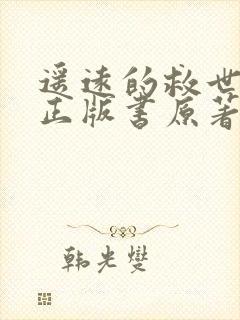 遥远的救世
正版书原著
韩光燮